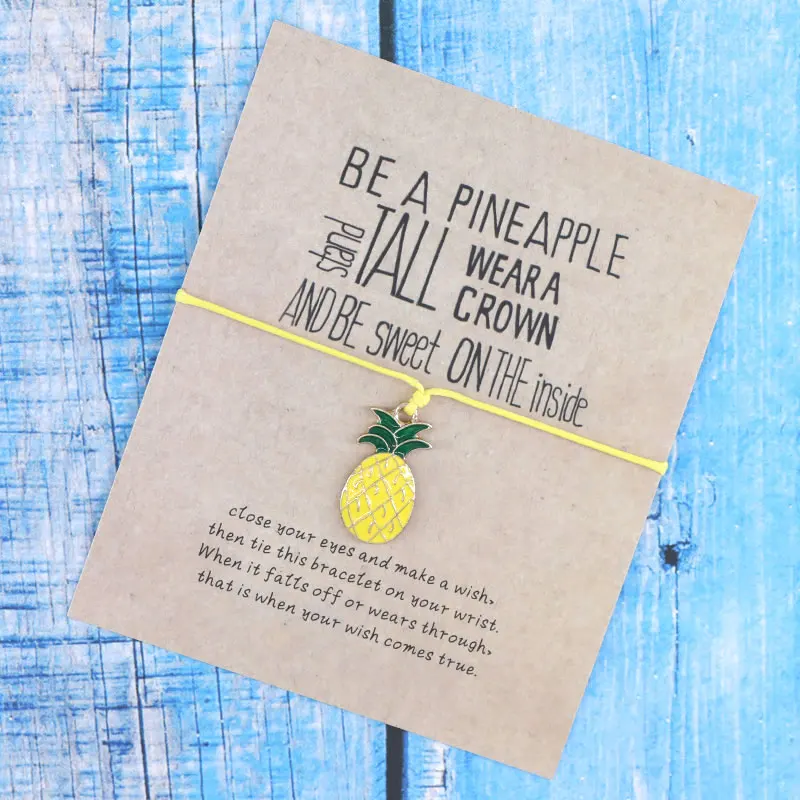 BE A PINEAPPLE
stand TALL WEAR A
CROWN
AND BE sweet ON THE inside
close your eyes and make a wish,
then tie this bracelet on your wrist.
When it falls off or wears through,
that is when your wish comes true.